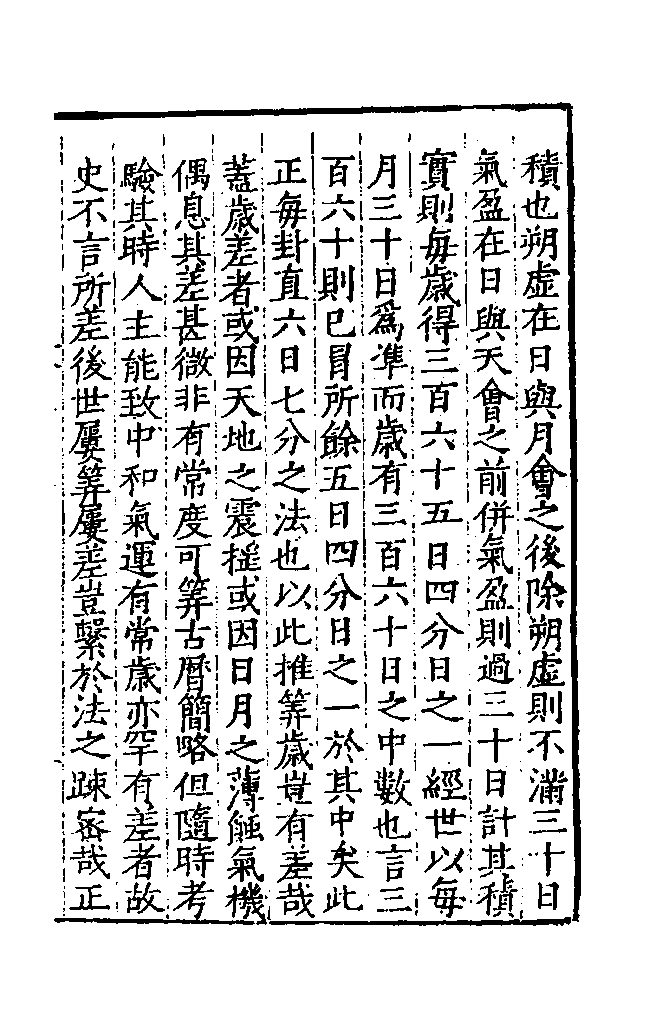 積也朔虚在日與月會之後除朔虚則不滿三十日
氣盈在日與天會之前併氣盈則過三十日計其積
實則每歲得三百六十五日四分日之一經世以每
月三十日為準而歲有三百六十日之中數也言三
百六十則已冒所餘五日四分日之一於其中矣此
正每卦直六日七分之法也以此推筭歲豈有差哉
蓋歲差者或因天地之震摇或因日月之薄蝕氣機
偶息其差甚微非有常度可筭古曆簡略但隨時考
驗其時人主能致中和氣運有常歲亦罕有差者故
史不言所差後世屢筭屢差豈繫於法之疎密哉正